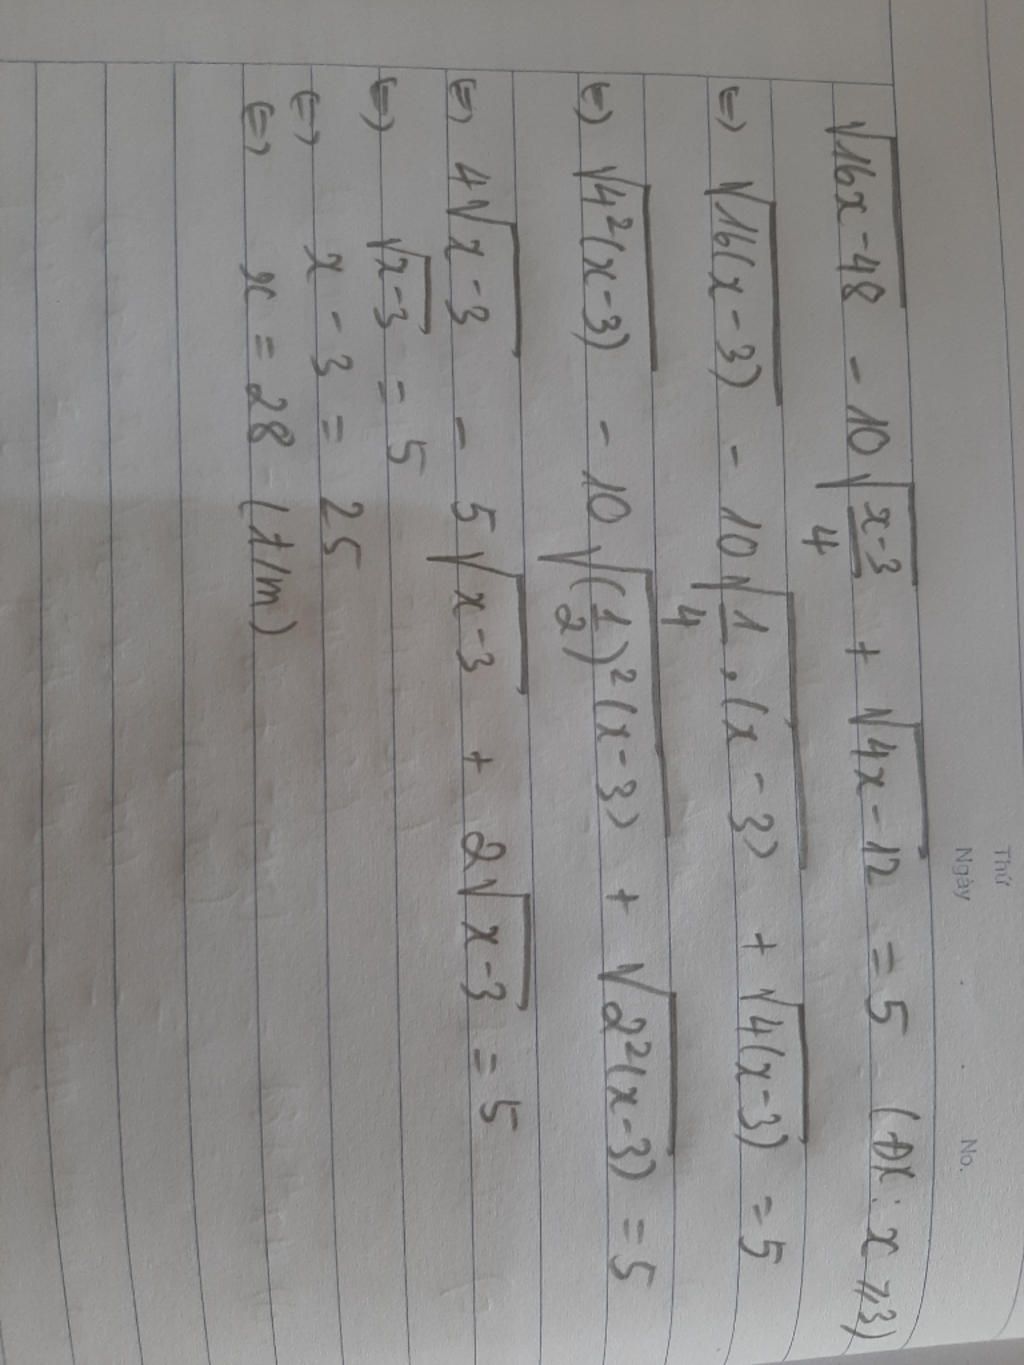 Thứ
Ngày . . No.
√(16x-48) - 10√((x-3)/4) + √(4x-12) = 5 (ĐK: x ⩾ 3)
⇔ √(16(x-3)) - 10√(1/4 . (x-3)) + √(4(x-3)) = 5
⇔ √(4²(x-3)) - 10√((1/2)²(x-3)) + √(2²(x-3)) = 5
⇔ 4√(x-3) - 5√(x-3) + 2√(x-3) = 5
⇔ √(x-3) = 5
⇔ x - 3 = 25
⇔ x = 28 (t/m)